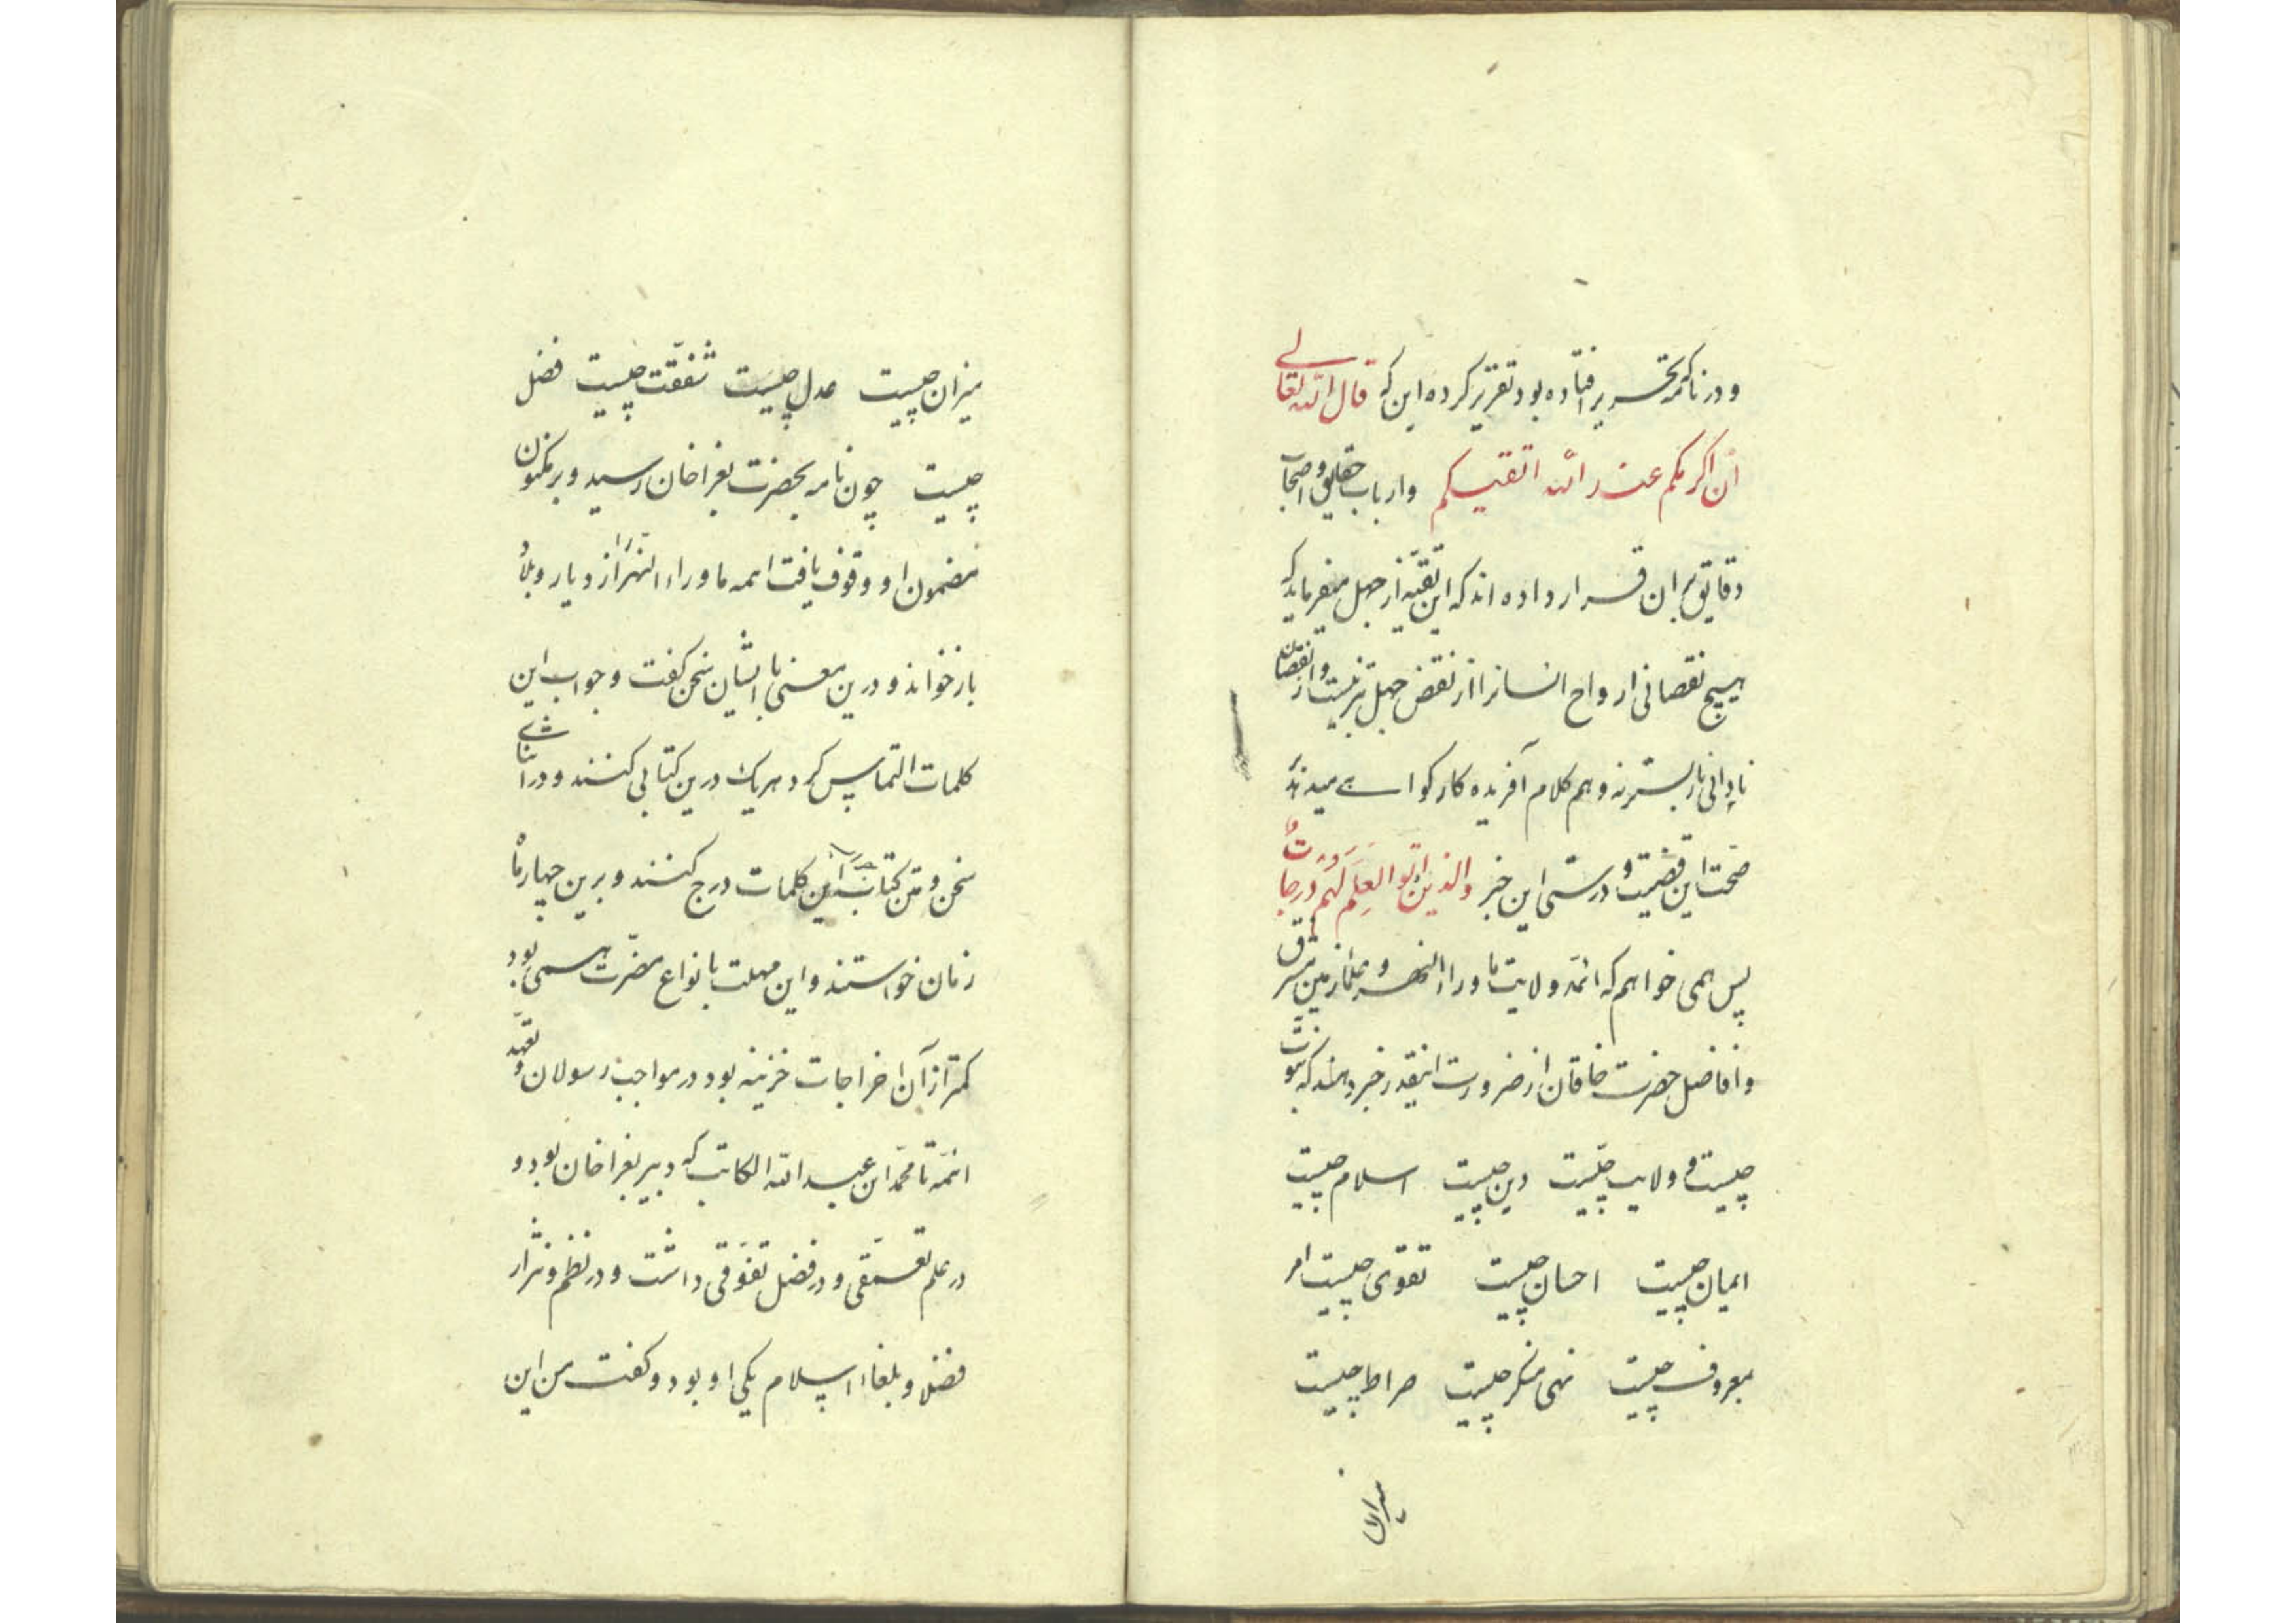 و در نامه تحریر افتاده بود تقریر کرده این که قال الله تعالی
ان اکرمکم عند الله اتقیکم وارباب حقایق و اصحاب
دقایق بر ان قرار داده اند که این تقیه از جهل میفرماید که
هیچ نقصانی ارواح انسانرا از نقض جهل بتر نیست و از نقصان
نادانی بازپسترنه و هم کلام آفریده کار کواهے میدهد
صحت این قضیت و درستی این خبر والذین اتوا العلم لهم درجات
پس همی خواهم که ائمه ولایت ماوراء النهر و علماء زمین مشرق
و افاضل حضرت خاقان از ضرورت اینقدر خبر دهند که نبوت
چیست و ولایت چیست دین چیست اسلام چیست
ایمان چیست احسان چیست تقوی چیست امر
بمعروف چیست نهی منکر چیست صراط چیست
میزان
میزان چیست عدل چیست شفقت چیست فضل
چیست چون نامه بحضرت بغراخان رسید و بر مکنون
مضمون او وقوف یافت ائمه ماوراء النهر را از دیار و بلاد
بازخواند و درین معنی با ایشان سخن کفت و جواب این
کلمات التماس کرد هریک درین کتابی کنند و در اثنای
سخن و متن کتاب جواب این کلمات درج کنند و برین چهار ماه
زمان خواستند و این مهلت بانواع مضرت همی بود
کمتر از آن اخراجات خزینه بود در مواجب رسولان و تعهد
ائمه تا محمد ابن عبد الله الکاتب که دبیر بغراخان بود و
در علم تعمقی و در فضل تفوقی داشت و در نظم و نثر از
فضلا و بلغاء اسلام یکی او بود و کفت من این